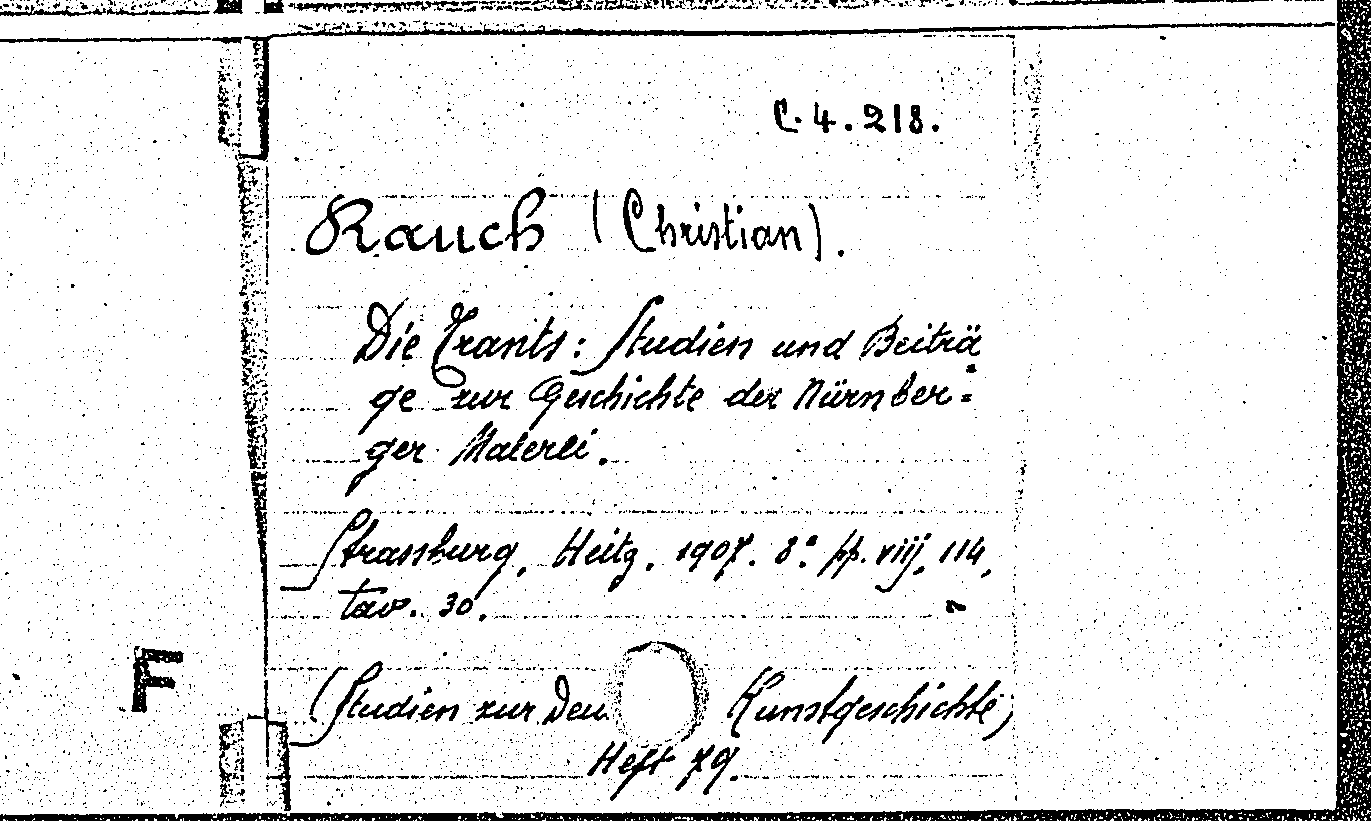 C. 4. 218.
Rauch (Christian).
Die Trants: Studien und Beiträ
ge zur Geschichte der Nürnber=
ger Malerei.
Strassburg, Heitz. 1907. 8° pp. viij, 114,
tav. 30.
F
(Studien zur Deu Kunstgeschichte)
Heft 79.